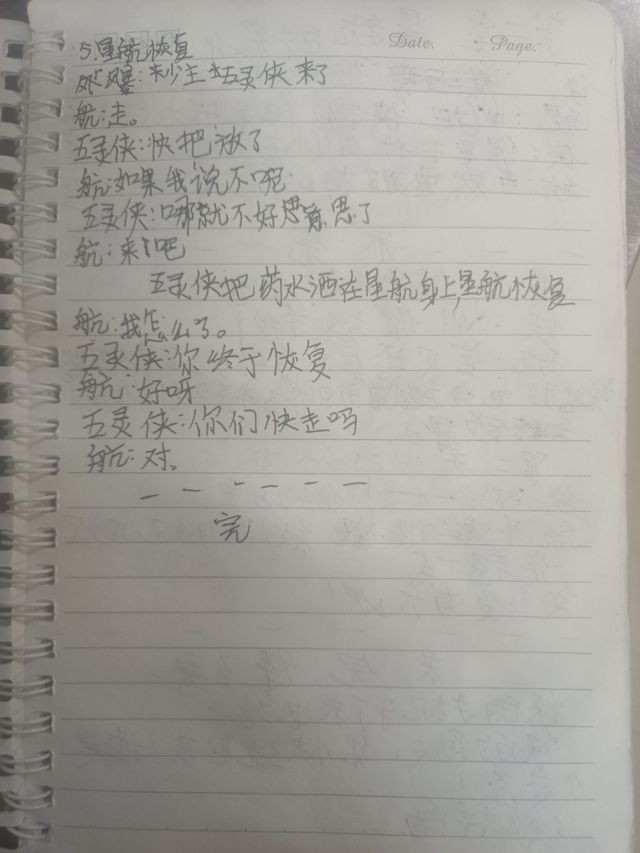 Date. Page.
5.星航恢复
风暴:少主五灵侠来了
航:走。
五灵侠:快把放了
航:如果我说不呢
五灵侠:哪就不好思意思了
航:来吧
五灵侠把药水洒在星航身上,星航恢复
航:我怎么了。
五灵侠:你终于恢复
航:好呀
五灵侠:你们快走吗
航:对。
— — — — — —
完